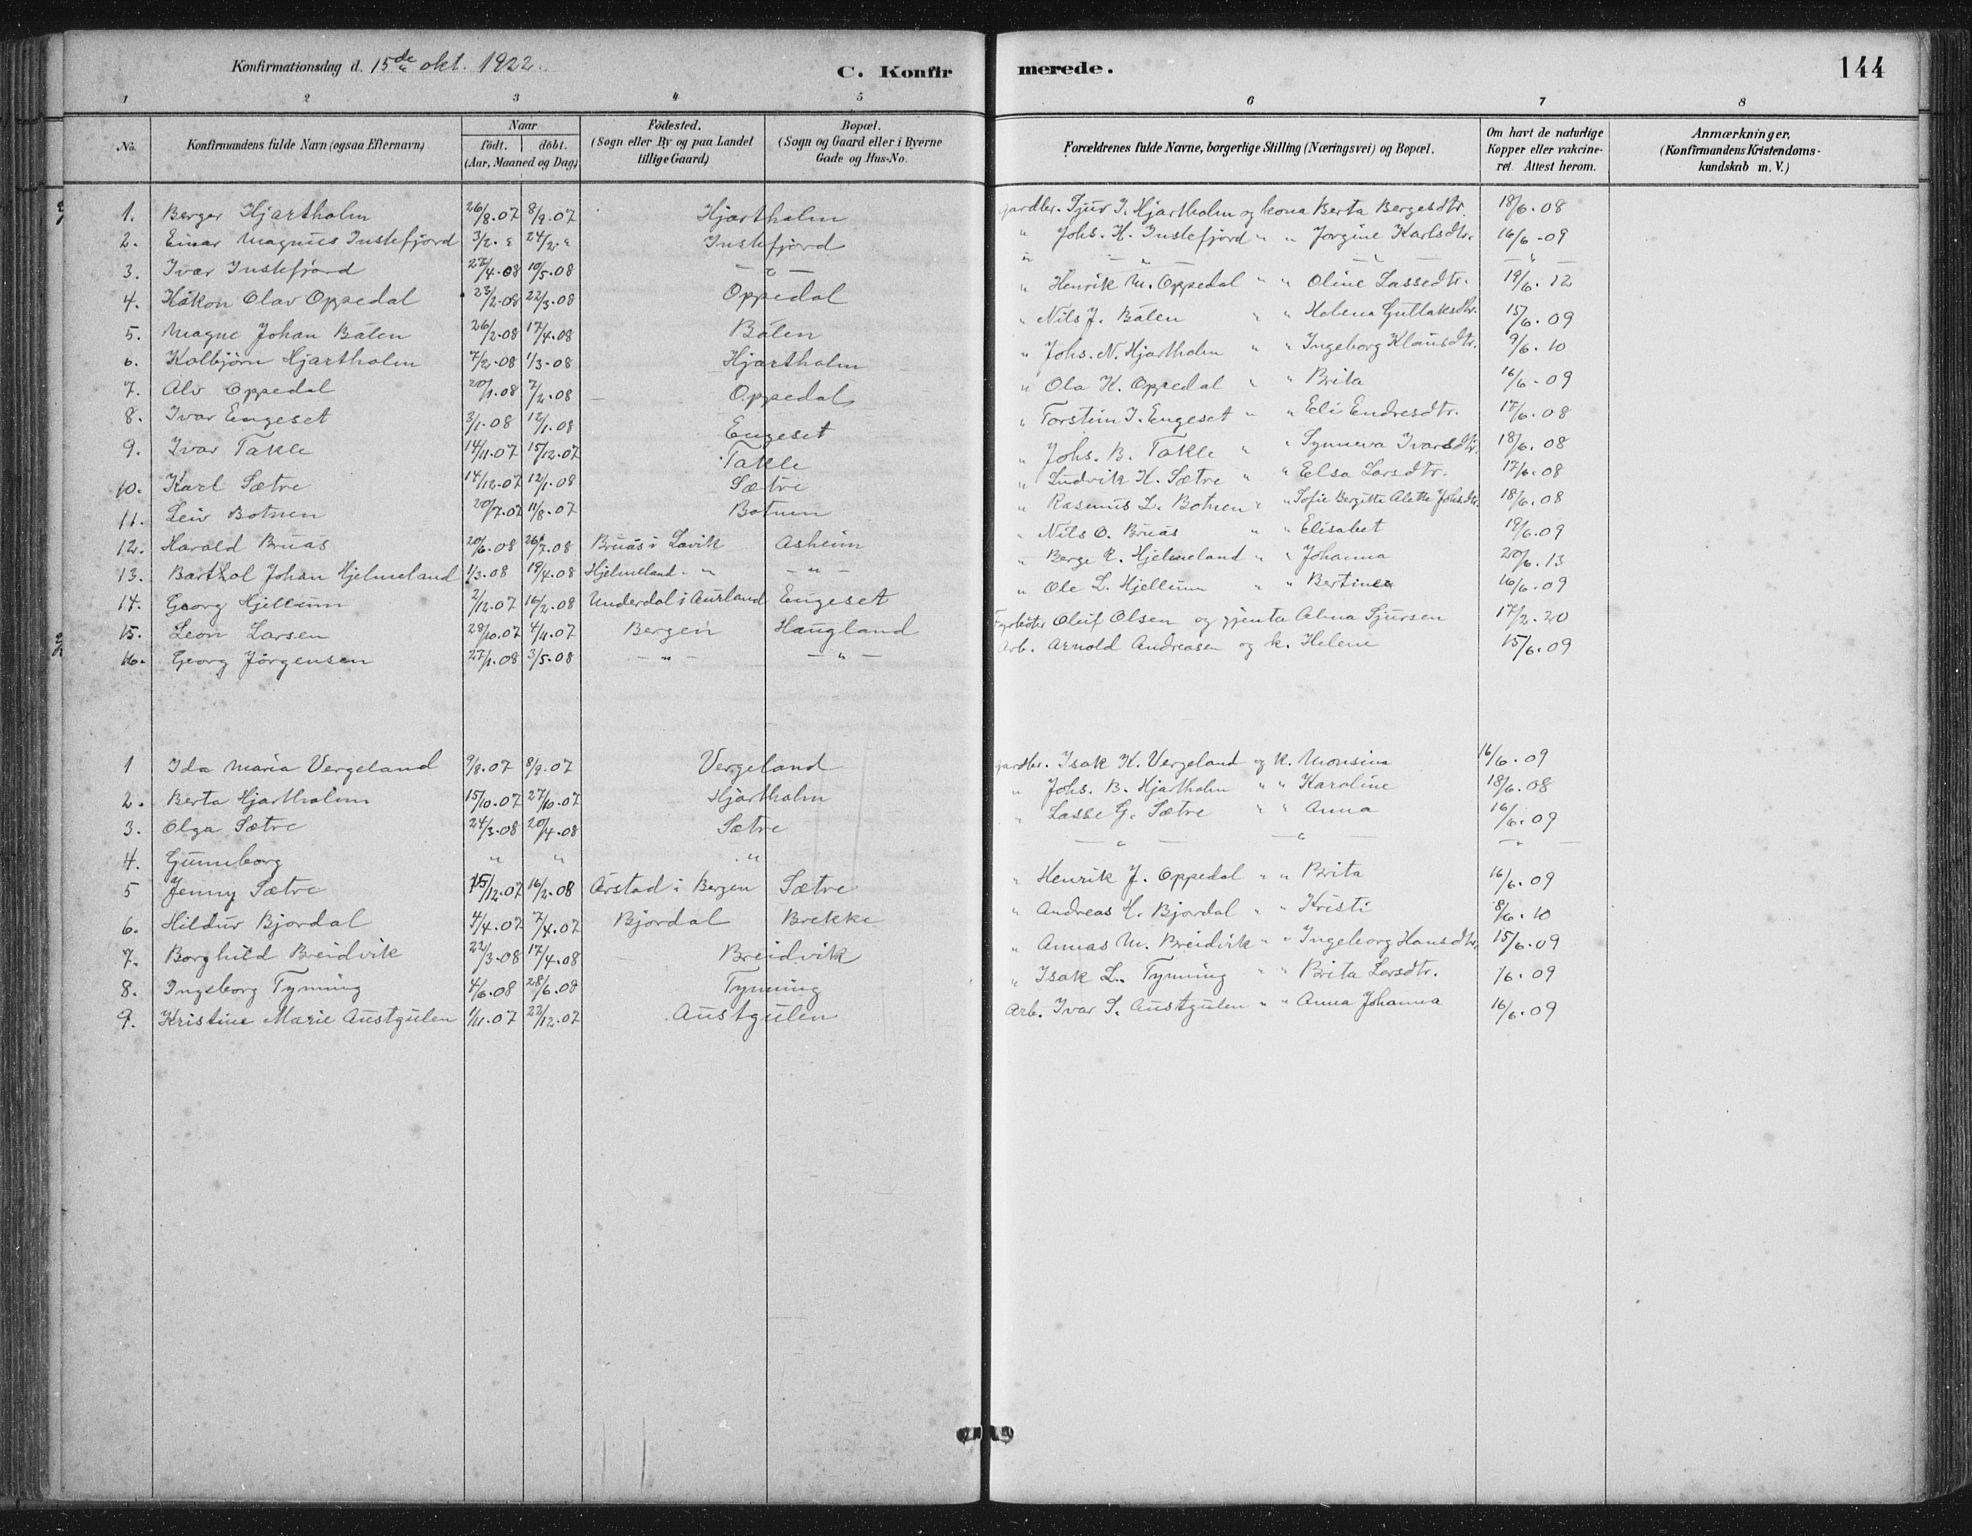 Konfirmationsdag d. 15de okt. 1922. C. Konfirmerede. 144
1 2 3 4 5 6 7 8
No. Konfirmandens fulde Navn (ogsaa Efternavn) Naar födt. döbt. (Aar, Maaned og Dag) Födested. (Sogn eller By og paa Landet tillige Gaard) Bopæl. (Sogn og Gaard eller i Byerne Gade og Hus-No. Forældrenes fulde Navne, borgerlige Stilling (Næringsvei) og Bopæl. Om havt de naturlige Kopper eller vakcineret. Attest herom. Anmærkninger, (Konfirmandens Kristendomskundskab m. V.)
1. Berger Hjartholm 26/8.07 8/9.07 Hjartholm gardbr. Sjur I. Hjartholm og kona Berta Bergesdtr. 18/6.08
2. Einar Magnus Instefjord 3/2. " 24/2. " Instefjord " Johs. H. Instefjord " " Jorgine Karlsdtr. 16/6.09
3. Ivar Instefjord 27/4.08 10/5.08 — " — " — " — — " — — " —
4. Håkon Olav Oppedal 23/2.08 22/3.08 Oppedal " Henrik M. Oppedal " " Oline Lassedtr. 19/6.12
5. Magne Johan Båten 26/2.08 17/4.08 Båten " Nils J. Båten " " Helena Guttaksdtr. 15/6.09
6. Kolbjörn Hjartholm 7/2.08 1/3.08 Hjartholm " Johs. N. Hjartholm " " Ingeborg Klausdtr. 9/6.10
7. Alv Oppedal 20/1.08 7/2.08 Oppedal " Ola K. Oppedal " " Brita 16/6.09
8. Ivar Engeset 3/1.08 12/1.08 Engeset " Torstein I. Engeset " " Eli Endresdtr. 17/6.08
9. Ivar Takle 14/11.07 15/12.07 Takle " Johs. B. Takle " " Synneva Ivarsdtr. 18/6.08
10. Karl Sætre 14/12.07 12/1.08 Sætre " Ludvik K. Sætre " " Elsa Larsdtr. 17/6.08
11. Leiv Botnen 20/7.07 11/8.07 Botnen " Rasmus L. Botnen " " Sofie Bergitte Alette Johsdtr. 18/6.08
12. Harald Bruås 20/6.08 26/7.08 Bruås i Lavik Asheim " Nils O. Bruås " " Elisabet 19/6.09
13. Barthol Johan Hjelmeland 1/3.08 19/4.08 Hjelmeland - " — " — " Berge R. Hjelmeland " " Johanna 20/6.13
14. Georg Hjellum 2/12.07 16/2.08 Underdal i Aurland Engeset " Ole L. Hjellum " " Bertinea 16/6.09
15. Leon Larsen 28/10.07 4/11.07 Bergen Haugland Fyrböter Oluf Olsen og gjenta Alma Sjursen 17/2.20
16. Georg Jörgensen 27/1.08 3/5.08 — " — — " — Arb. Arnold Andreasen og k. Helene 15/6.09
1 Ida Maria Vergeland 9/8.07 8/9.07 Vergeland gardbr. Isak K. Vergeland og k. Monsina 16/6.09
2. Berta Hjartholm 15/10.07 27/10.07 Hjartholm " Johs. B. Hjartholm " " Karoline 18/6.08
3. Olga Sætre 24/3.08 20/4.08 Sætre " Lasse G. Sætre " " Anna 16/6.09
4. Gunnborg " " " — " — — " — — " —
5 Jenny Sætre 15/12.07 16/2.08 Årstad i Bergen Sætre " Henrik J. Oppedal " " Brita 16/6.09
6. Hildur Bjordal 4/4.07 7/4.07 Bjordal Brekke " Andreas H. Bjordal " " Kristi 8/6.10
7. Borghild Breidvik 22/3.08 17/4.08 Breidvik " Annas M. Breidvik " " Ingeborg Hansdtr. 15/6.09
8. Ingeborg Tynning 4/6.08 28/6.08 Tynning " Isak L. Tynning " " Brita Larsdtr. /6.09
9. Kristine Marie Austgulen 1/11.07 22/12.07 Austgulen Arb. Ivar S. Austgulen " " Anna Johanna 16/6.09